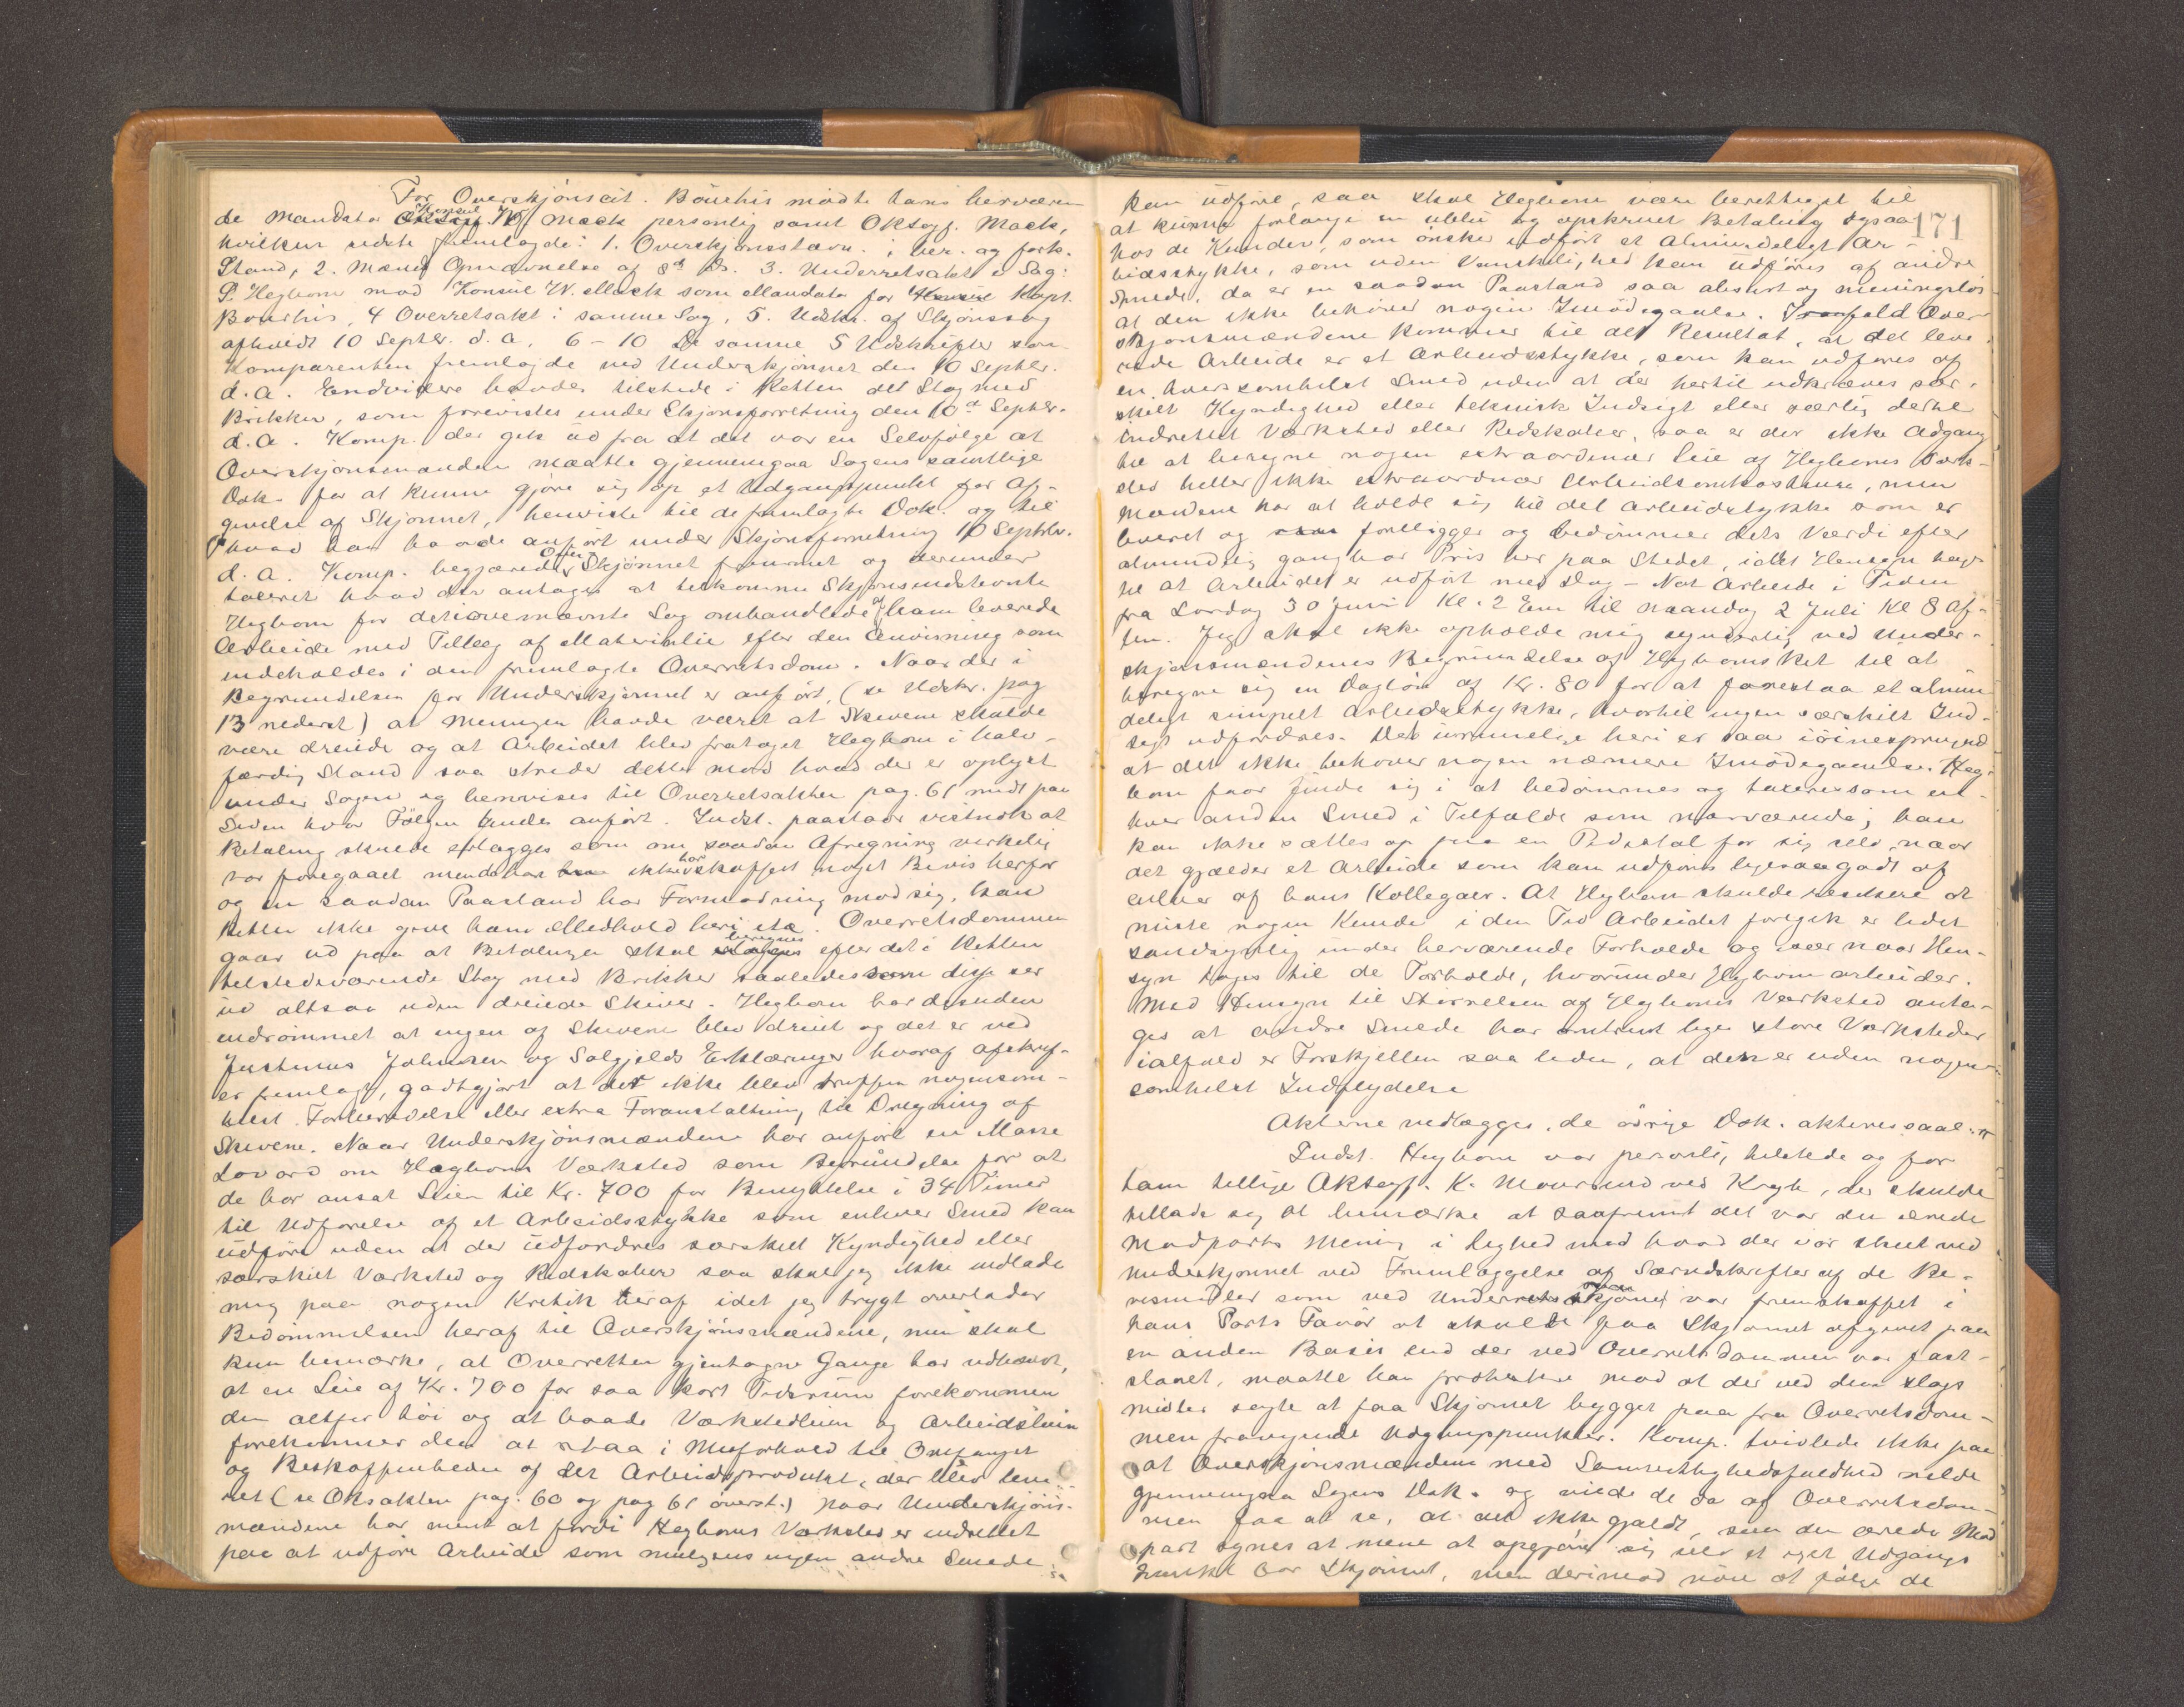 For Overskjönscit. Bouchis mödte hans herværen
de Mandatar Konsul W Mack personlig samt OKsagf. Mack,
hvilken sidste fremlagde: 1. Overskjönsstævn. i ber. og fork.
Stand, 2. Mænds Opnævnelse af 8de ds. 3. Underretsakt i Sag:
P. Hegbom mod Konsul W. Mack som Mandatar for Kapt.
Bouchis, 4 Overretsakt i samme Sag, 5. Udskr. af Skjönssag
afholdt 10 Septbr. d.a, 6-10 De samme 5 Udskrifter som
Komparenten fremlagde ved Underskjönnet den 10 Septbr.
d.a. Endvidere havdes tilstede i Retten det Stag med
Brikker, som forevistes under Skjönsforretning den 10de Septbr.
d.a. Komp. der gik ud fra at det var en Selvfölge at
Overskjönsmændene maatte gjennemgaa Sagens samtlige
Dok. for at kunne gjöre sig op et Udgangspunkt for Af-
givelse af Skjönnet, henviste til de fremlagte Dok. og til
hvad han havde anfört under Skjönsforretning 10 Septbr.
d.a. Komp. begjærede Over Skjönnet fremmet og derunder
taxeret hvad der antages at tilkomme Skjönsindstevnte
Hegbom for det i ovennævnte Sag omhandlede af ham leverede
Arbeide med Tillæg af Materialier efter den Anvisning som
indeholdes i den fremlagte Overretsdom. Naar der i
Begrundelsen for Underskjönnet er anfört, (se Udskr. pag
13 nederst) at Meningen havde været at Skivene skulde
være dreiede og at Arbeidet blev frataget Hegbom i halv-
færdig Stand saa strider dette mod hvad der er oplyst
under Sagen og henvises til Overretsakten pag. 61 midt paa
Siden hvor Fölgen findes anfört. Indst. paastaar vistnok at
Betaling skulde erlægges som om saadan Afregning virkelig
var foregaaet men da har ikke har skaffet noget Bevis herfor
og en saadan Paastand har Formodning mod sig, kan
Retten ikke give ham Medhold heri etc. Overretsdommen
gaar ud paa at Betalingen skal beregnes efter det i Retten
tilstedeværende Stag med Brikker saaledes som disse ser
ud altsaa uden dreiede Skiver. Hegbom har desuden
indrömmet at ingen af Skivene blev dreiet og det er ved
Justinus Johnsen og Solgjelds Erklæringer hvoraf afskrif-
er fremlagt, godtgjort at der ikke blev truffen nogensom-
helst Forberedelse eller extra Foranstaltning til Dreining af
Skivene. Naar Underskjönsmændene har anfört en Masse
Lovord om Hegboms Værksted som Begrundelse for at
de har ansat Leien til Kr. 700 for Benyttelse i 34 Timer
til Udförelse af et Arbeidsstykke som enhver Smed kan
udföre uden at der udfordres særskilt Kyndighed eller
særskilt Værksted og Redskaber saa skal jeg ikke indlade
mig paa nogen Kritik heraf idet jeg trygt overlader
Bedömmelsen heraf til Overskjönsmændene, men skal
kun bemærke, at Overretten gjentagne Gange har udhævet,
at en Leie af Kr. 700 for saa kort Tidsrum forekommer
den altfor höi og at baade Værkstedleien og Arbeidslöin
forekommer den at staa i Misforhold til Omfanget
og Beskaffenheden af det Arbeidsprodukt, der blev leve
ret (se Oksakten pag. 60 og pag 61 överst.) Naar Underskjöns-
mændene har ment at fordi Hegboms Værksted er indrettet
paa at udföre Arbeide som muligens ingen andre Smede
kan udföre, saa skal Hegbom være berettiget til
at kunne forlange en ublu og opskruet Betaling ogsaa
171
hos de Kunder, som önsker udfört et almindeligt Ar-
beidsstykke, som uden Vanskelighed kan udföres af andre
Smede, da er en saadan Paastand saa absurt og meningslös
at den ikke behöver nogen Imödegaaelse. Isaafald Over
skjönsmændene kommer til det Resultat, at det leve
rede Arbeide er et Arbeidsstykke, som kan udföres af
en hversomhelst Smed uden at der hertil udkræves sær-
skilt Kyndighed eller teknisk Indsigt eller særlig dertil
indrettet Værksted eller Redskaber, saa er der ikke Adgang
til at beregne nogen extraordinær leie af Hegboms Værk-
sted heller ikke extraordinær Arbeidsomkostninger, men
Mændene har at holde sig til det Arbeidstykke som er
leveret og foreligger og bedömmer dets Værdi efter
almindlig gangbar Pris her paa Stedet, idet Hensyn hav-
es at Arbeidet er udfört med Dag-Nat Arbeide i Tiden
fra Lördag 30 Juni Kl. 2 Em til Mandag 2 Juli Kl 8 Af-
ten. Jeg skal ikke opholde mig synderlig ved Under-
skjönsmændenes Begrundelse af Hegboms Ret til at
beregne sig en Daglön af Kr. 80 for at forestaa et almin
deligt simpelt Arbeidsstykke, hvortil ingen særskilt Ind-
sigt udfordres. Det urimelige heri er saa iöinespringend
at det ikke behöver nogen nærmere Imödegaaelse. Heg-
bom faar finde sig i at bedömmes og taxeres som en
hver anden Smed i Tilfælde som nærværende; han
kan ikke sættes op paa en Pidestal for sig selv, naar
det gjælder et Arbeide som kan udföres ligesaa godt af
enhver af hans Kollegaer. At Hegbom skulde risikere at
miste nogen Kunde i den Tid Arbeidet foregik er lidet
sandsynlig under herværende Forholde og især naar Hen-
syn tages til de Forholde, hvorunder Hegbom arbeider.
Med Hensyn til Störrelsen af Hegboms Værksted anta-
ges at andre Smede har omtrent lige store Værksteder
ialfald er Forskjellen saa liden, at den er uden nogen-
somhelst Indflydelse
Akterne vedlægges, de övrige Dok. akteres saal.:
Indst. Hegbom var personlig tilstede og for
ham tillige Oksagf. K. Moursund ved Krogh, der skulde
tillade sig at bemærke at saafremt det var den ærede
Modparts Mening i Lighed med hvad der var skeet ved
Underskjönnet ved Fremlæggelse af Særudskrifter af de Be-
vismidler som ved Underskjönnet var fremskaffet i
hans Parts Favör at skulde faa Skjönnet afgivet paa
en anden Basis end der ved Overretsdommen var fast-
slaaet, maatte han protestere mod at der ved den slags
midler sögte at faa Skjönnet bygget paa fra Overretsdom-
men fravigende Udgangspunkter. Komp. tvivlede ikke paa
at Overskjönsmændene med Samvittighedsfuldhed vilde
gjennemgaa Sagens Dok. og vilde de da af Overretsdom-
men faa at se, at det ikke gjaldt, som den ærede Mod
part synes at mene at opgjöre sig selv et eget Udgangs
punkt for Skjönnet, men derimod nöie at fölge de